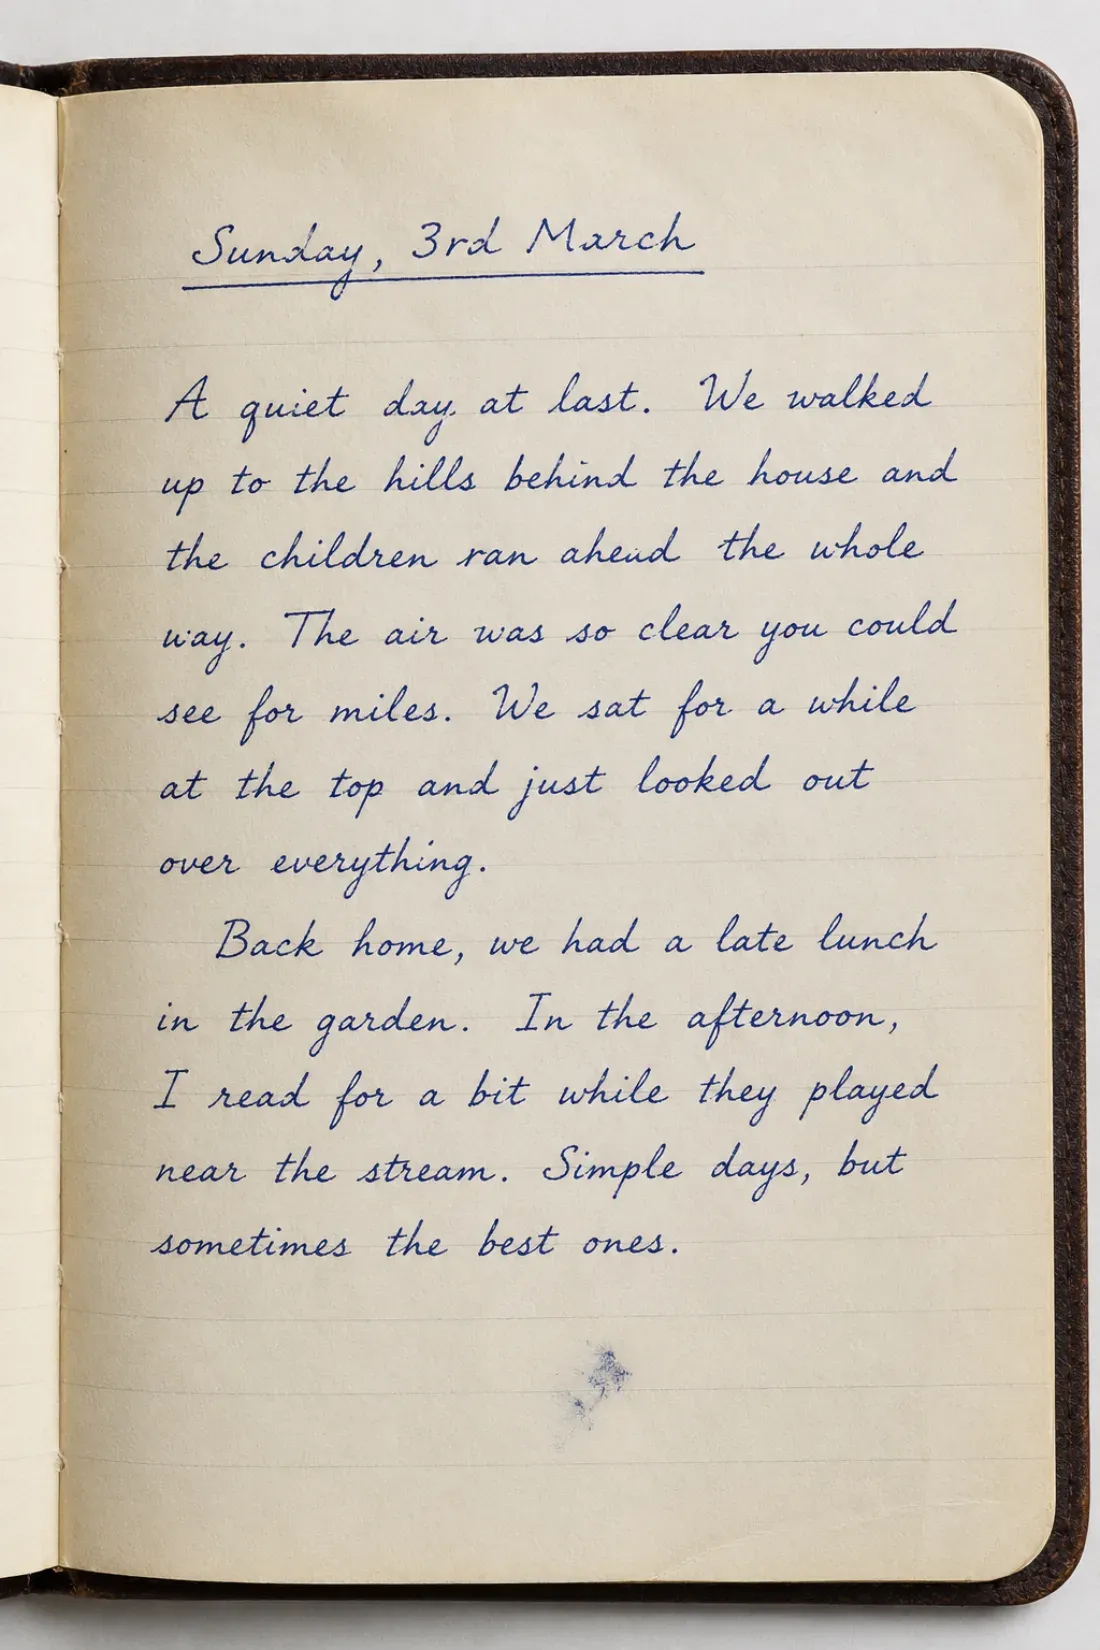 Sunday, 3rd March
A quiet day at last. We walked
up to the hills behind the house and
the children ran ahead the whole
way. The air was so clear you could
see for miles. We sat for a while
at the top and just looked out
over everything.
Back home, we had a late lunch
in the garden. In the afternoon,
I read for a bit while they played
near the stream. Simple days, but
sometimes the best ones.